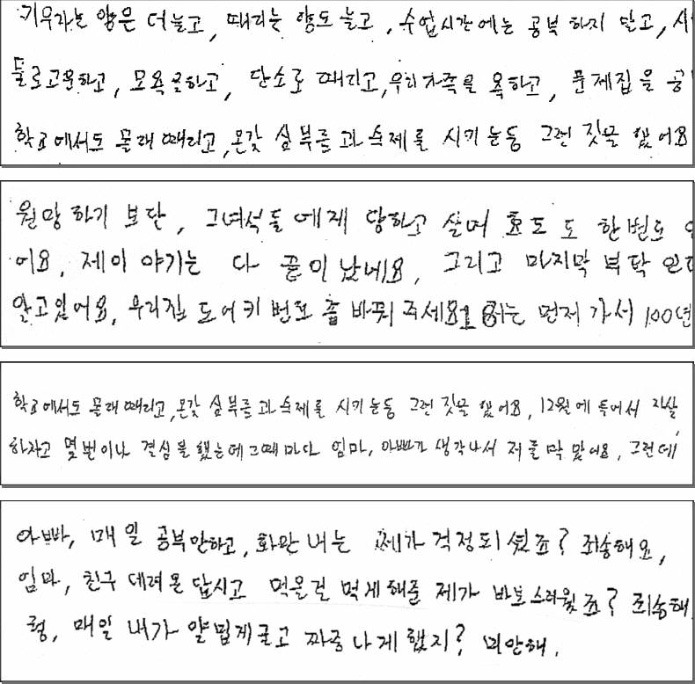 키우라는 양은 더 늘고, 때리는 양도 늘고, 수업시간에는 공부하지 말고, 시
물로고문하고, 모욕을하고, 단소로 때리고,우리가족을 욕하고, 문제집을 공
학교에서도 몰래때리고,온갖 심부름과 숙제를 시키는등 그런 짓을 했어요
원망하기 보단, 그녀석들에게 당하고 살며 효도도 한번도
어요, 제이야기는 다 끝이났네요, 그리고 마지막 부탁인데
알고있어요, 우리집 도어키 번호좀 바꿔주세요. 저는 먼저 가서 100년
학교에서도 몰래때리고,온갖 심부름과 숙제를 시키는등 그런 짓을 했어요, 12월에 들어서 자살
하자고 몇번이나 결심을 했는데 그때마다 엄마, 아빠가 생각나서 저를 막았어요, 그런데
아빠, 매일 공부안하고, 화만내는 제가 걱정되셨죠? 죄송해요,
엄마, 친구 데려온답시고 먹을걸 먹게해준 제가 바보스러웠죠? 죄송해
형, 매일 내가 얄밉게굴고 짜증나게했지? 미안해,